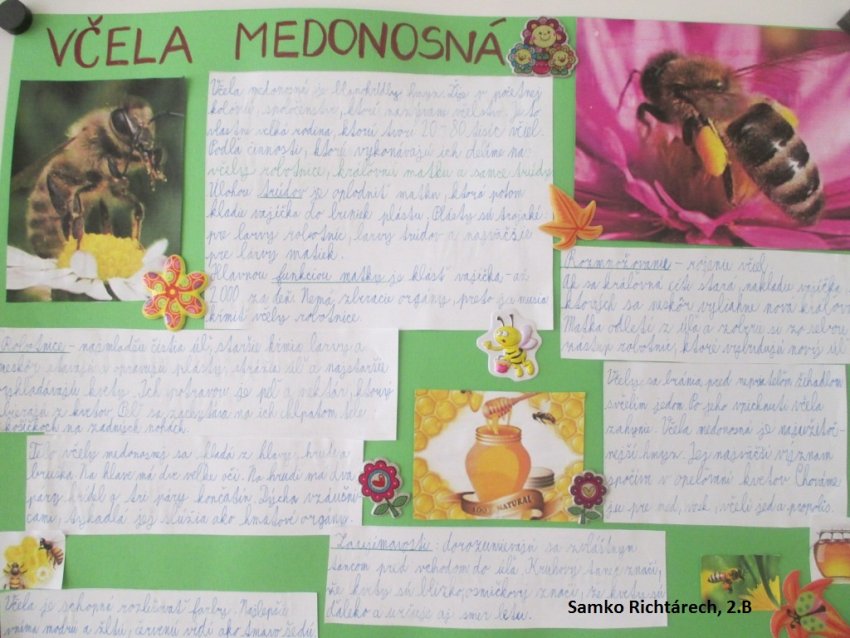 VČELA MEDONOSNÁ
Včela medonosná je blanokrídly hmyz. Žije v početnej
kolónii, spoločenstve, ktoré nazývame včelstvo. Je to
vlastne veľká rodina, ktorú tvorí 20-80 tisíc včiel.
Podľa činnosti, ktorú vykonávajú ich delíme na
včely robotnice, kráľovnú matku a samce trúdy.
Úlohou trúdov je oplodniť matku, ktorá potom
kladie vajíčka do buniek plástu. Plásty sú trojaké:
pre larvy robotníc, larvy trúdov a najväčšie
pre larvy matiek.
Hlavnou funkciou matky je klásť vajíčka - až
2 000 za deň. Nemá zberacie orgány, preto ju musia
kŕmiť včely robotnice.
Rozmnožovanie - rojenie včiel.
Ak sa kráľovna cíti stará, nakladie vajíčka
z ktorých sa neskôr vyliahne nová kráľovná
Matka odletí z úľa a zoberie si zo sebou
zástup robotníc, ktoré vybudujú nový úľ
Robotnice - najmladšie čistia úľ, staršie kŕmia larvy a
neskôr stavajú a opravujú plásty, strážia úľ a najstaršie
vyhľadávajú kvety. Ich potravou je peľ a nektár, ktorý
z kvetov. Peľ sa zachytáva na ich chlpatom tele
košíčkoch na zadných nohách.
Včely sa bránia pred nepriateľom žihadlom
s včelím jedom. Po jeho vpichnutí včela
zahynie. Včela medonosná je najužitoč-
nejší hmyz. Jej najväčší význam
spočíva v opeľovaní kvetov. Chováme
ju pre med, vosk, včelí jed a propolis.
Telo včely medonosnej sa skladá z hlavy, hrude a
bruška. Na hlave má dve veľké oči. Na hrudi má dva
páry krídel a tri páry končatín. Dýcha vzdušni-
cami, tykadlá jej slúžia ako hmatové orgány.
100% NATURAL
Zaujímavosti: dorozumievajú sa zvláštnym
tancom pred vchodom do úľa. Kruhový tanec značí,
že kvety sú blízko, osmičkový značí, že kvety sú
ďaleko a určuje aj smer letu.
Včela je schopná rozlišovať farby. Najlepšie
vníma modrú a žltú, červenú vidí ako tmavo šedú
Samko Richtárech, 2.B